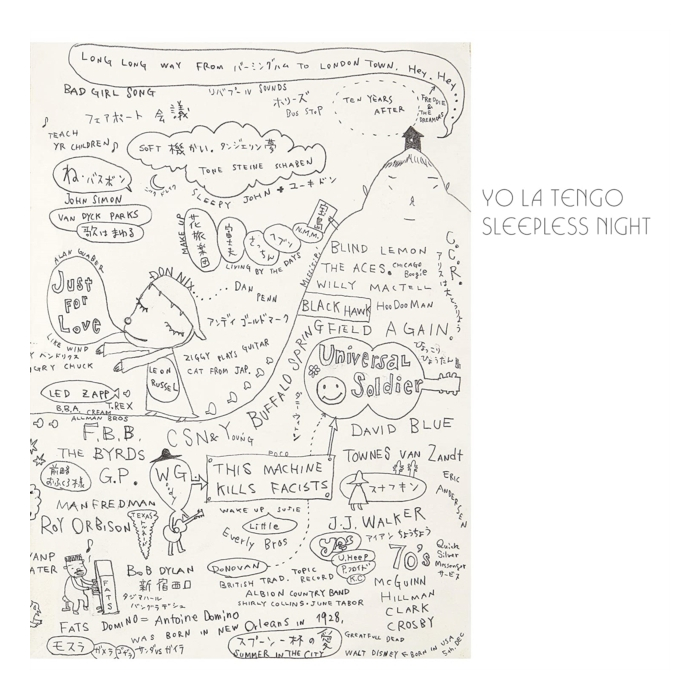 LONG LONG WAY FROM バーミングハム TO LONDON TOWN. Hey, Hey..
BAD GIRL SONG
リバプール SOUNDS
ホリーズ
BUS STOP
TEN YEARS
AFTER
FREDDIE
&
THE
DREAMERS
フェアポート 会議
TEACH
YR CHILDREN
SOFT 機かい。タンジェリン夢
TONE STEINE SCHABEN
ね・バスボン
SLEEPY JOHN + ユーキドン
JOHN SIMON
VAN DYCK PARKS
歌はまわる
MAKE UP
花旅楽団
富士夫
N.M.M.
LIVING BY THE DAYS
YO LA TENGO
SLEEPLESS NIGHT
ALAN WABER
Just
For
Love
DON NIX
DAN
PENN
アンディ ゴールドマーク
BLIND LEMON
THE ACES.
CHICAGO
Boogie
WILLY MACTELL
BLACK HAWK
HooDooMAN
C.C.R.
BUFFALO SPRINGFIELD AGAIN.
ひょっこり
ひょうたん島
LIKE WIND
ヘンドリクス
NGRY CHUCK
ZIGGY PLAYS GUITAR
CAT FROM JAP.
LEON
RUSSEL
Universal
Soldier
LED ZAPP
B.B.A. CREAM
T.REX
ALLMAN BROS
F.B.B.
CSN& Young
DAVID BLUE
THE BYRDS
POCO
TOWNES VAN Zandt
G.P.
WG
THIS MACHINE
KILLS FACISTS
スナフキン
ERIC
ANDERSEN
MANFREDMAN
ROY ORBISON
TEXAS
WAKE UP SUSIE
Little
Everly Bros
J.J. WALKER
YES
アイアン ちょうちょう
U.Heep
P.フロイド
K.C
70's
Quick
Silver
Messenger
サービス
BOB DYLAN
新宿西口
FATS
DONOVAN
TOPIC
BRITISH TRAD. RECORD
ALBION COUNTRY BAND
SHIRLY COLLINS・JUNE TABOR
McGUINN
HILLMAN
CLARK
CROSBY
タジマハール
バングラデシュ
FATS DOMINO = Antoine Domino
WAS BORN IN NEW Orleans IN 1928,
モスラ
ガメラ
サンダ VS ガイラ
スプーン一杯の愛
SUMMER IN THE CITY
GREATFULL DEAD
WALT DISNEY
BORN IN USA
5th. DEC